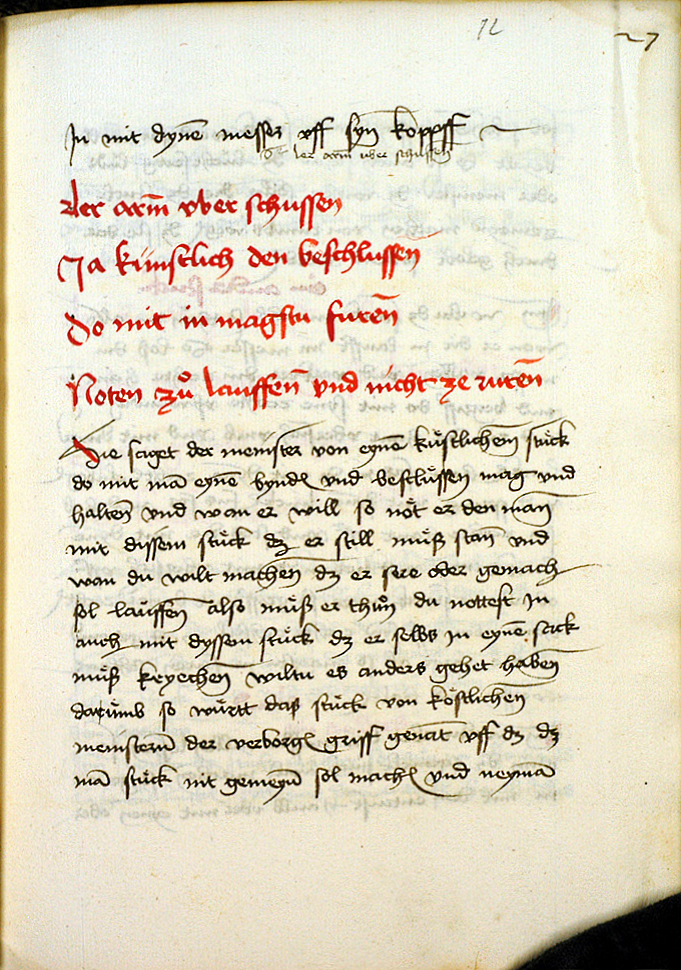 12
27
In mit dynē messer vff syn kopff
Der arm uber schussen
Der arm vber schussen
Ja kunstlich den beschlussen
Do mit in magstu furen̄
Noten zů lauffen̄ vnd nicht ze ruren̄
Hie saget der meinster von eynē kůstlichem̄ stuck
do mit mā eynē bynd vnd besluͤssen mag vnd
halten̄ vnd wan er will so noͤt er den man̄
mit dissem stuͤck dz er still muͤß stan̄ vnd
wan du wilt machen̄ dz er sere oder gemach
sol lauͤffen̄ also muͤß er thůn̄ du nottest In
auch mit dyssen stuͤck dz er selbs in eynē sack
muͤß keyechen̄ wiltu es anders gehet haben̄
darumb so wuͤrtt daß stuͤck von koͤstlichen̄
meinstern̄ der verborgē griff genāt vff dz dz
mā stuͤck nit gemeyn̄ sol machē vnd neymā